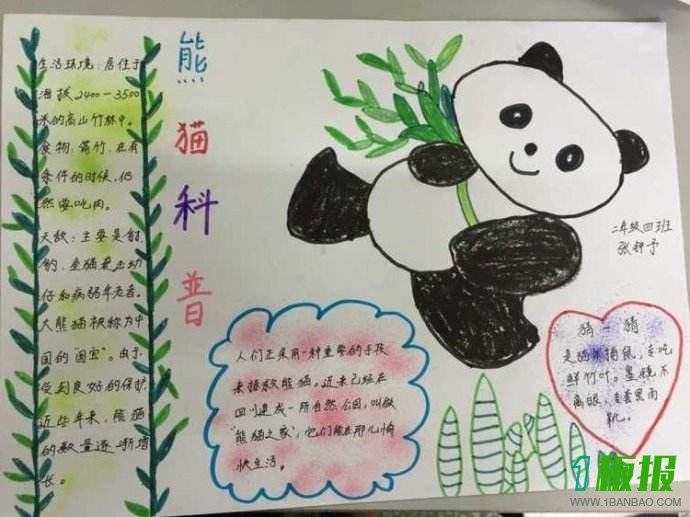 熊
猫
科
普
生活环境:居住于
海拔2400—3500
米的高山竹林中。
食物:箭竹,在有
条件的时候,仍
然要吃肉。
天敌:主要是豺、
豹,坐猫袭击幼
仔和病弱年老者。
大熊猫被称为中
国的“国宝”。由于
受到良好的保护,
近些年来,熊猫
的数量逐渐增
长。
人们正采用一种重要的手段
来拯救熊猫。近来已经在
四川建成一所自然公园,叫做
“熊猫之家”,它们能在那儿愉
快生活。
二年级四班
张钟予
猜一猜
是猫不捕鼠,专吃
鲜竹叶。墨镜不
离眼,爱着黑雨
靴。
1板报
WWW.1BANBAO.COM